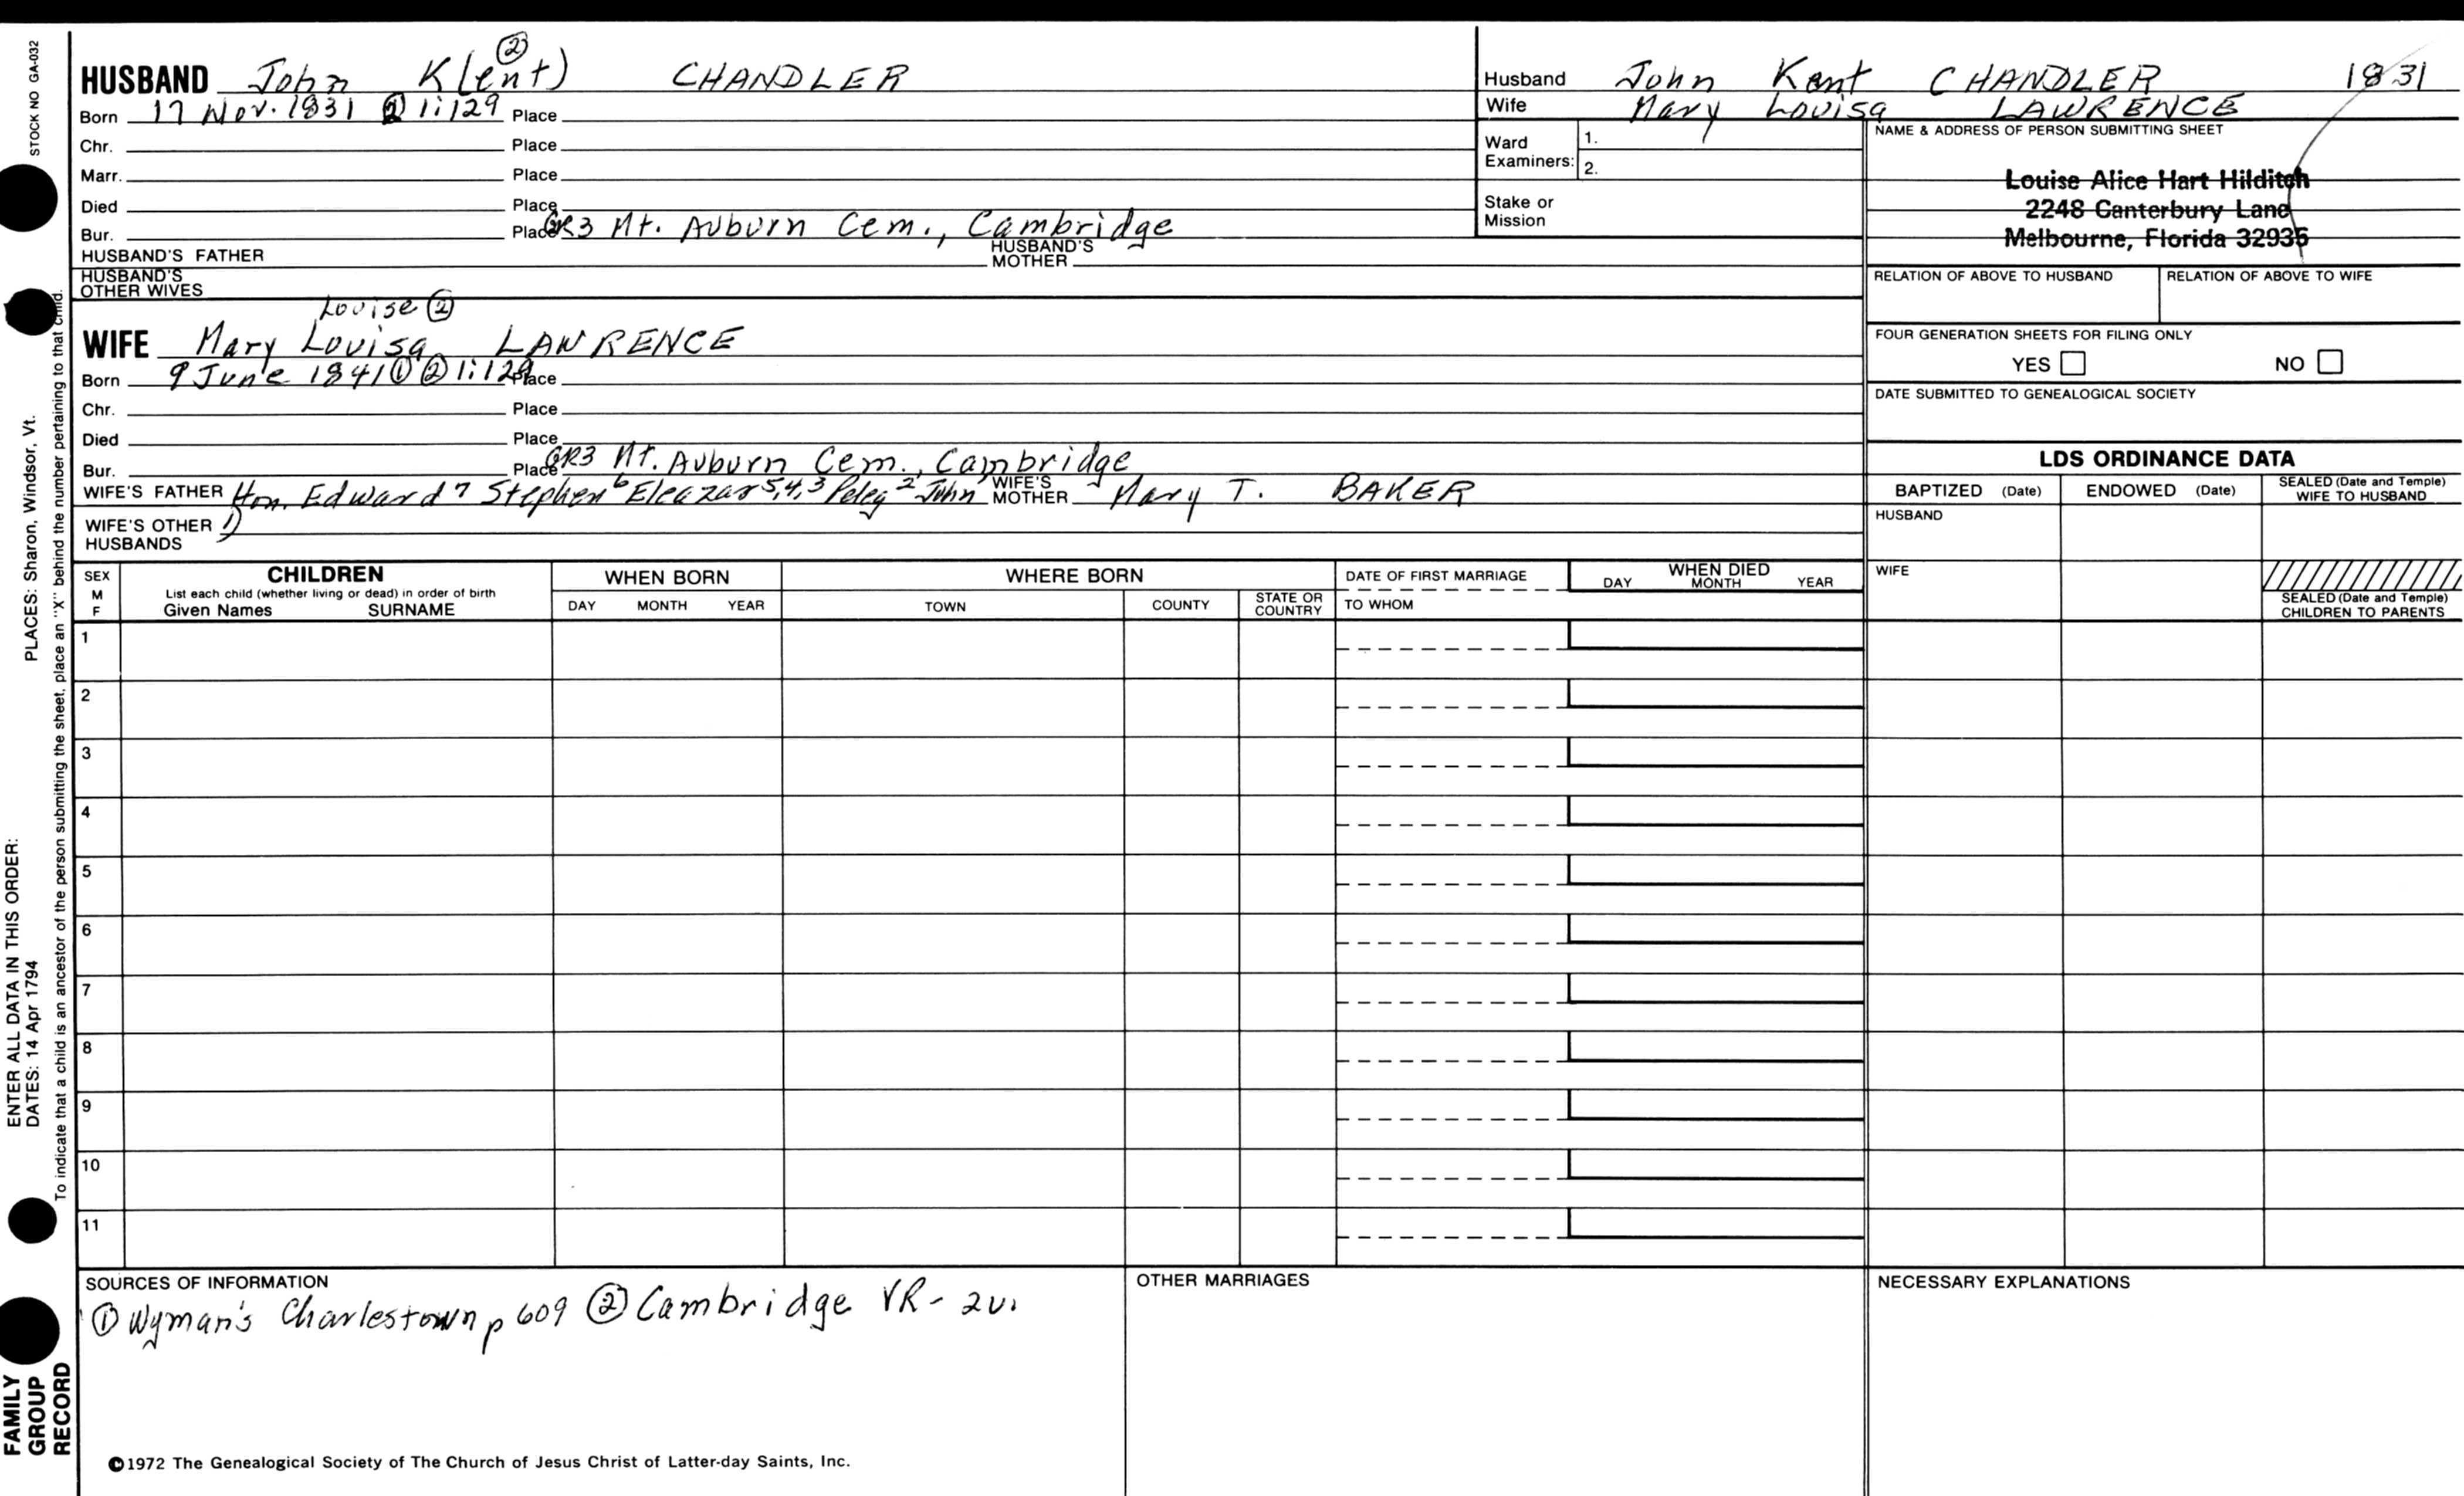 STOCK NO GA-032
②
HUSBAND John K(ent) CHANDLER
Born 17 Nov. 1831 ② 1:129 Place
Chr. Place
Marr. Place
Died Place
Bur. Place GR3 Mt. Auburn Cem., Cambridge
HUSBAND'S FATHER HUSBAND'S MOTHER
HUSBAND'S OTHER WIVES
Louise ②
WIFE Mary Louisa LAWRENCE
Born 9 June 1841 ① ② 1:129 Place
Chr. Place
Died Place
Bur. Place GR3 Mt. Auburn Cem., Cambridge
WIFE'S FATHER Hon. Edward 7 Stephen 6 Eleazar 5,4,3 Peleg 2 John 1 WIFE'S MOTHER Mary T. BAKER
WIFE'S OTHER HUSBANDS 1)
Husband John Kent CHANDLER 1831
Wife Mary Louisa LAWRENCE
Ward Examiners: 1.
2.
Stake or Mission
NAME & ADDRESS OF PERSON SUBMITTING SHEET
Louise Alice Hart Hilditch
2248 Canterbury Lane
Melbourne, Florida 32935
RELATION OF ABOVE TO HUSBAND RELATION OF ABOVE TO WIFE
FOUR GENERATION SHEETS FOR FILING ONLY
YES NO
DATE SUBMITTED TO GENEALOGICAL SOCIETY
LDS ORDINANCE DATA
BAPTIZED (Date) ENDOWED (Date) SEALED (Date and Temple) WIFE TO HUSBAND
HUSBAND
WIFE
SEALED (Date and Temple) CHILDREN TO PARENTS
SEX M F CHILDREN WHEN BORN WHERE BORN DATE OF FIRST MARRIAGE WHEN DIED
List each child (whether living or dead) in order of birth
Given Names SURNAME DAY MONTH YEAR TOWN COUNTY STATE OR COUNTRY TO WHOM DAY MONTH YEAR
1
2
3
4
5
6
7
8
9
10
11
SOURCES OF INFORMATION
① Wyman's Charlestown p 609 ② Cambridge VR- 2v.
OTHER MARRIAGES
NECESSARY EXPLANATIONS
©1972 The Genealogical Society of The Church of Jesus Christ of Latter-day Saints, Inc.
ENTER ALL DATA IN THIS ORDER:
DATES: 14 Apr 1794 PLACES: Sharon, Windsor, Vt.
To indicate that a child is an ancestor of the person submitting the sheet, place an "X" behind the number pertaining to that child.
FAMILY
GROUP
RECORD